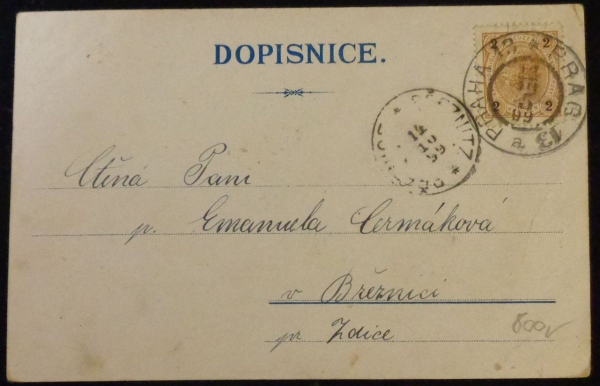 DOPISNICE.
2 2
2 2
PRAHA 13 PRAG
99
13 a
BŘEZNITZ
14
10
99
Ctěná Paní
p. Emanuela Čermáková
v Březnici
pr. Zdice
800